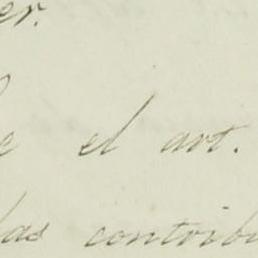 er.
e el art.
las contribu